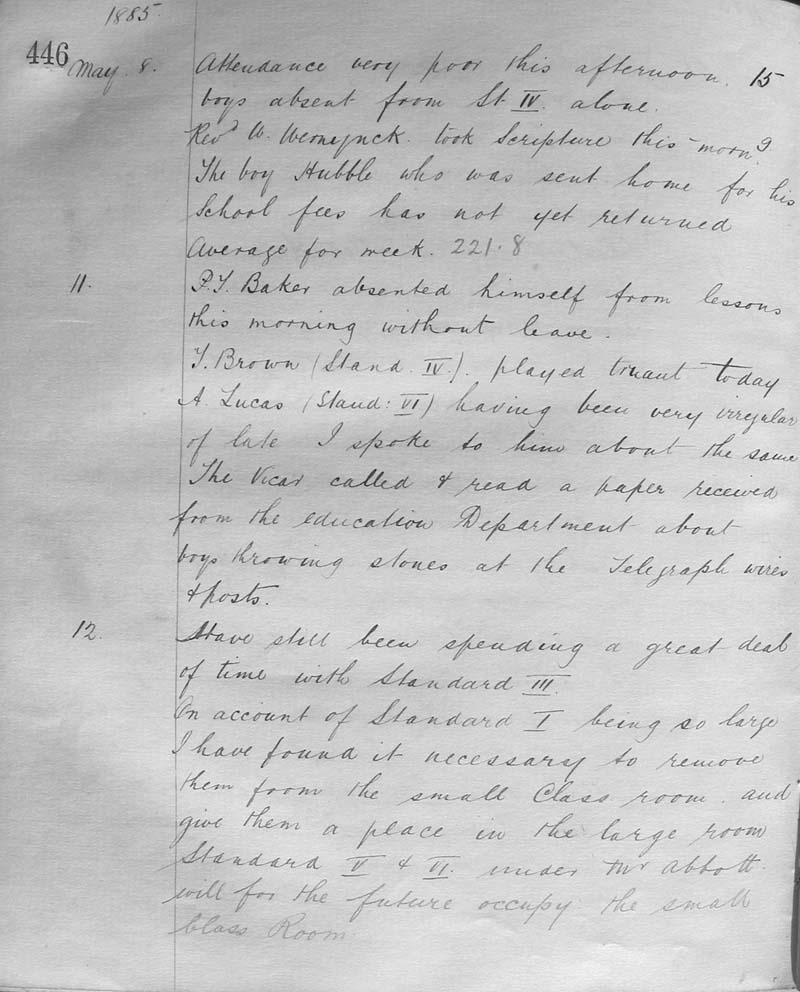 1885.
446
May. 8. Attendance very poor this afternoon. 15
boys absent from St. IV. alone.
Revd W. Wernynck. took Scripture this morng.
The boy Hubble who was sent home for his
School fees has not yet returned
Average for week. 221.8
11. P.T. Baker absented himself from lessons
this morning without leave.
T. Brown (Stand. IV.). played truant today
A. Lucas (Stand: VI) having been very irregular
of late I spoke to him about the same
The Vicar called & read a paper received
from the education Department about
boys throwing stones at the Telegraph wires
& posts.
12. Have still been spending a great deal
of time with Standard III.
On account of Standard I being so large
I have found it necessary to remove
them from the small Class room. and
give them a place in the large room
Standard V & VI. under Mr Abbott.
will for the future occupy the small
Class Room